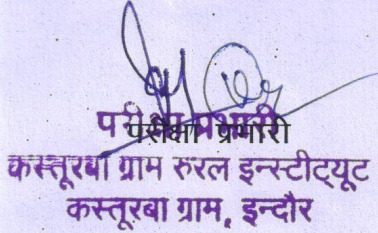 परीक्षा प्रभारी
परीक्षा प्रभारी
कस्तूरबा ग्राम रुरल इन्स्टीट्यूट
कस्तूरबा ग्राम, इन्दौर